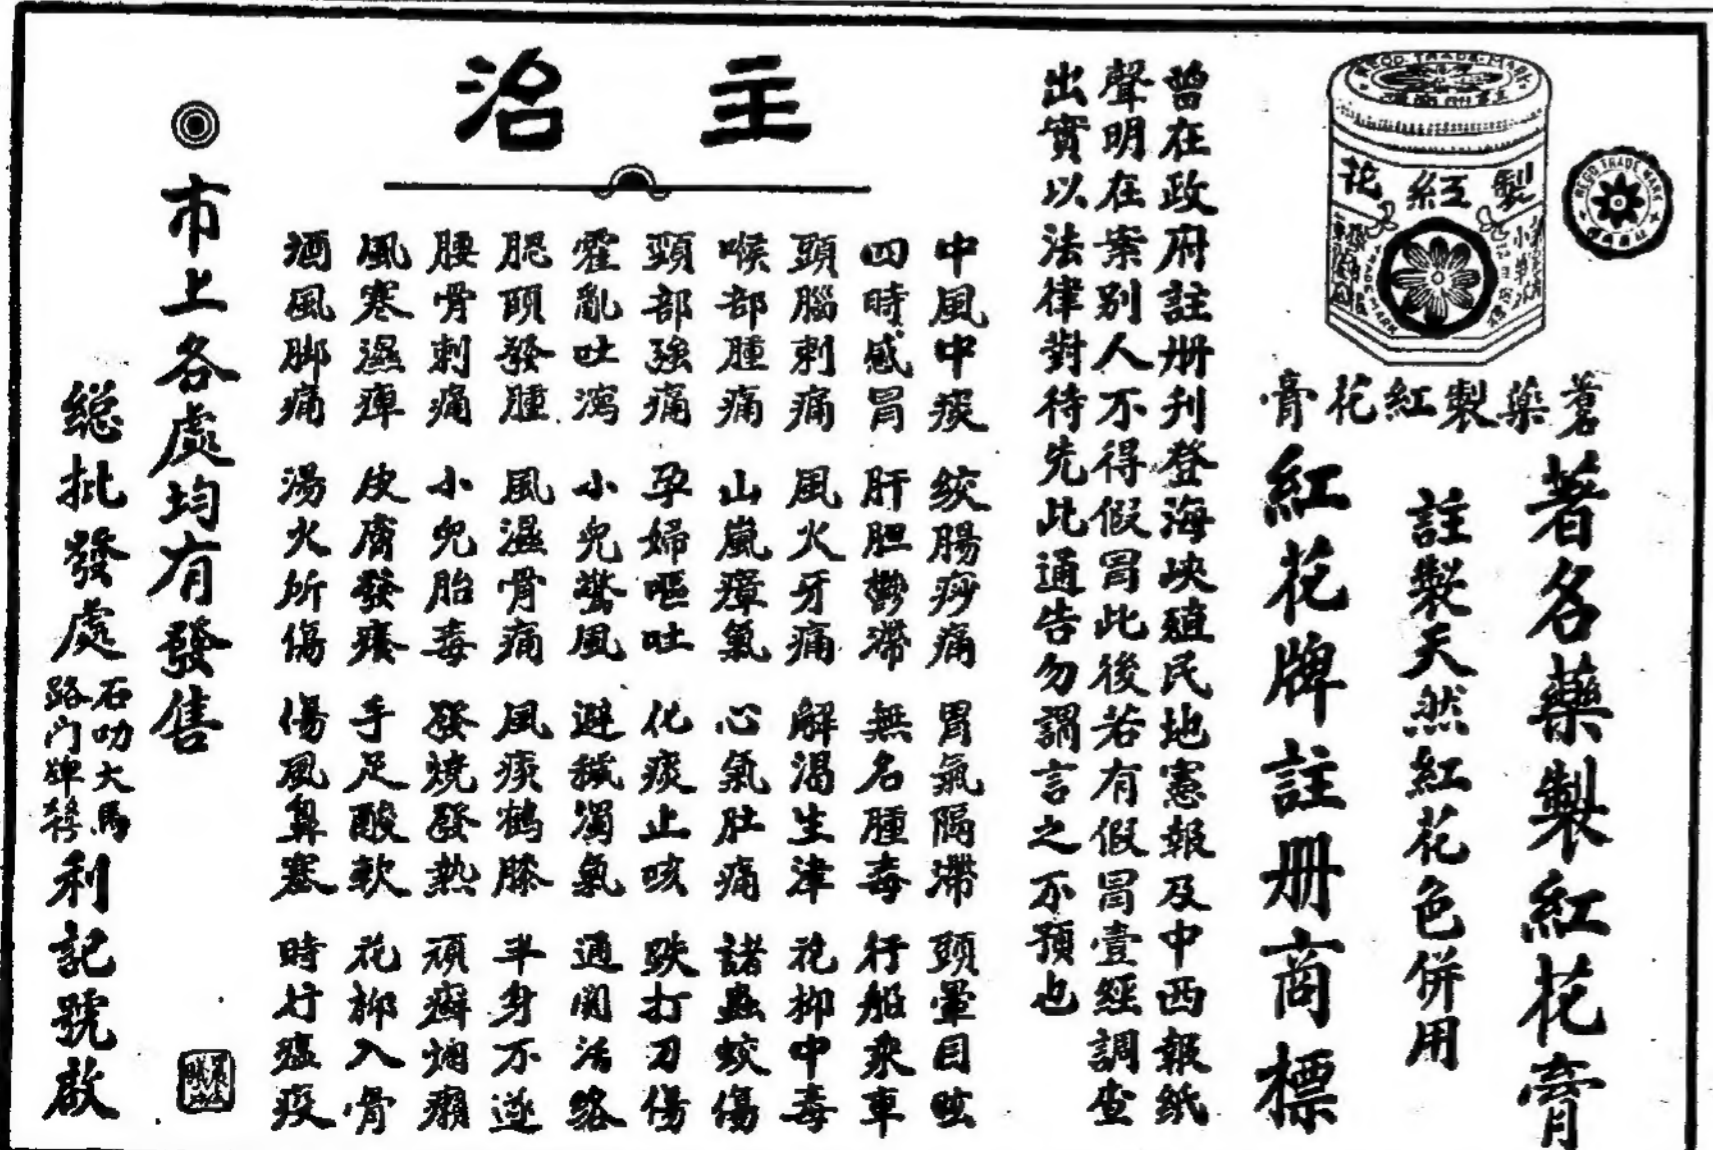 REGD. TRADE MARK
製紅花
TRADE MARK
REGD TRADE MARK
著藥製紅花膏
著名藥製紅花膏
註製天然紅花色併用
紅花牌註册商標
曾在政府註册刋登海峽殖民地憲報及中西報紙
聲明在案別人不得假冒此後若有假冒壹經調查
出實以法律對待先此通告勿謂言之不預也
主治
中風中痰 絞腸痧痛 胃氣隔滯 頭暈目眩
四時感冒 肝胆鬱滯 無名腫毒 行船乘車
頭腦刺痛 風火牙痛 解渴生津 花柳中毒
喉部腫痛 山嵐瘴氣 心氣肚痛 諸蟲蛟傷
頸部強痛 孕婦嘔吐 化痰止咳 跌打刀傷
霍亂吐瀉 小兒驚風 避穢濁氣 通関活絡
腮頤發腫 風濕骨痛 風痰鶴膝 半身不遂
腰骨刺痛 小兒胎毒 發燒發熱 頑癬爛癩
風寒濕痺 皮膚發癢 手足酸軟 花柳入骨
酒風脚痛 湯火所傷 傷風鼻塞 時行瘟疫
市上各處均有發售
総批發處 石叻大馬路门牌 利記號啟